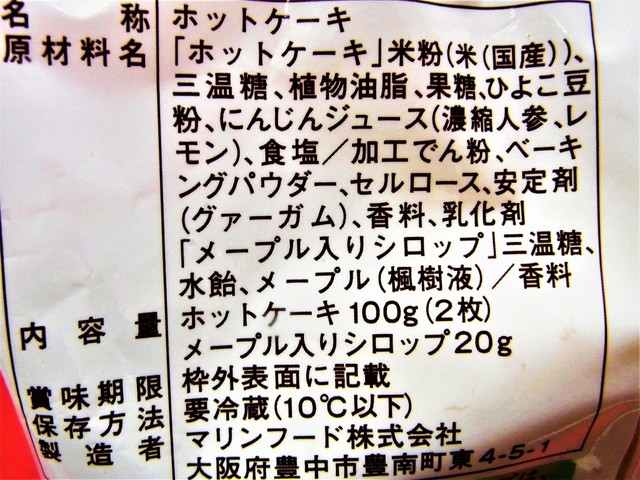 名称 ホットケーキ
原材料名 「ホットケーキ」米粉(米(国産))、
三温糖、植物油脂、果糖、ひよこ豆
粉、にんじんジュース(濃縮人参、レ
モン)、食塩／加工でん粉、ベーキ
ングパウダー、セルロース、安定剤
(グァーガム)、香料、乳化剤
「メープル入りシロップ」三温糖、
水飴、メープル(楓樹液)／香料
内容量 ホットケーキ100g(2枚)
メープル入りシロップ20g
賞味期限 枠外表面に記載
保存方法 要冷蔵(10℃以下)
製造者 マリンフード株式会社
大阪府豊中市豊南町東4-5-1